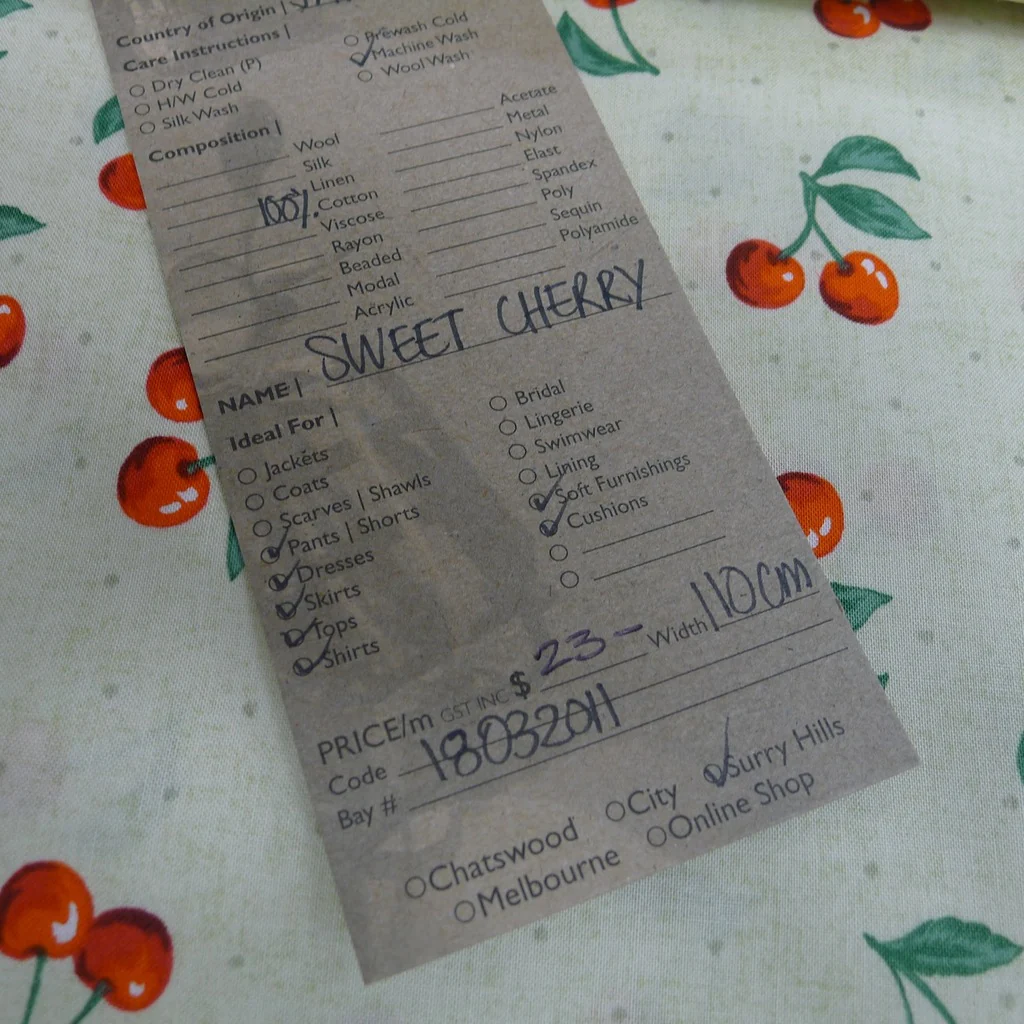 Country of Origin |
Care Instructions |
Dry Clean (P)
H/W Cold
Silk Wash
Prewash Cold
Machine Wash
Wool Wash
Composition |
Wool
Silk
Linen
100% Cotton
Viscose
Rayon
Beaded
Modal
Acrylic
Acetate
Metal
Nylon
Elast
Spandex
Poly
Sequin
Polyamide
NAME | SWEET CHERRY
Ideal For |
Jackets
Coats
Scarves | Shawls
Pants | Shorts
Dresses
Skirts
Tops
Shirts
Bridal
Lingerie
Swimwear
Lining
Soft Furnishings
Cushions
PRICE/m GST INC $ 23 - Width 110cm
Code 18032011
Bay #
Chatswood City Surry Hills
Melbourne Online Shop